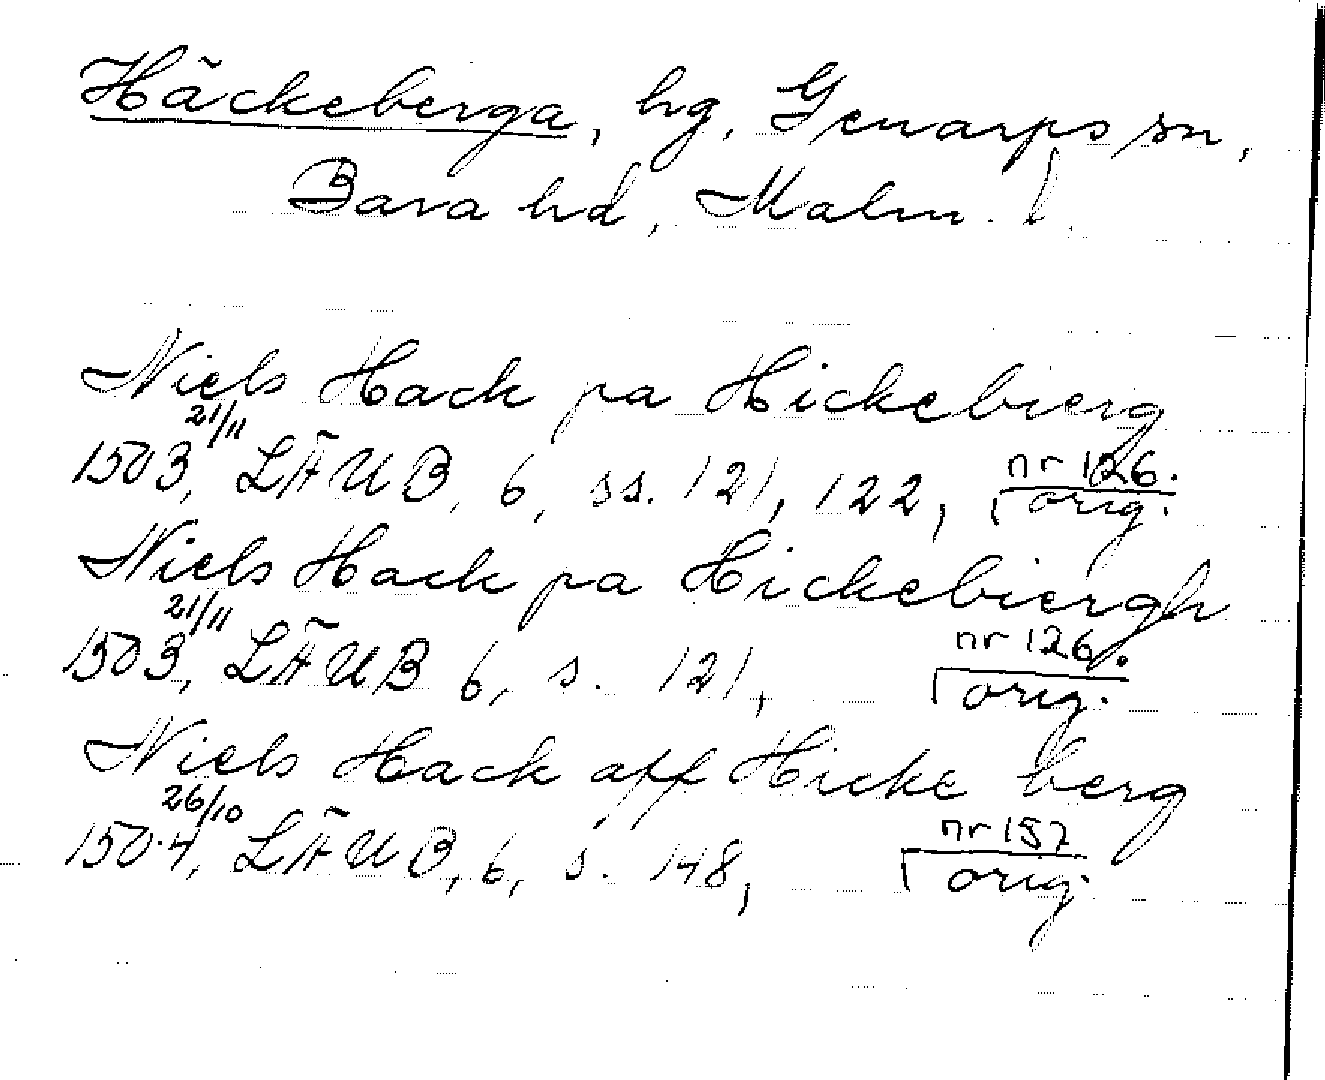 Häckeberga, hg, Genarps sn,
Bara hd, Malm. l.
Niels Hack pa Hickebierg
21/11
1503, LÄUB, 6, ss. 121, 122, nr 126. orig.
Niels Hack pa Hickebiergh
21/11
1503, LÄUB 6, s. 121, nr 126. orig.
Niels Hack aff Hicke berg
26/10
1504, LÄUB, 6, s. 148, nr 157 orig.